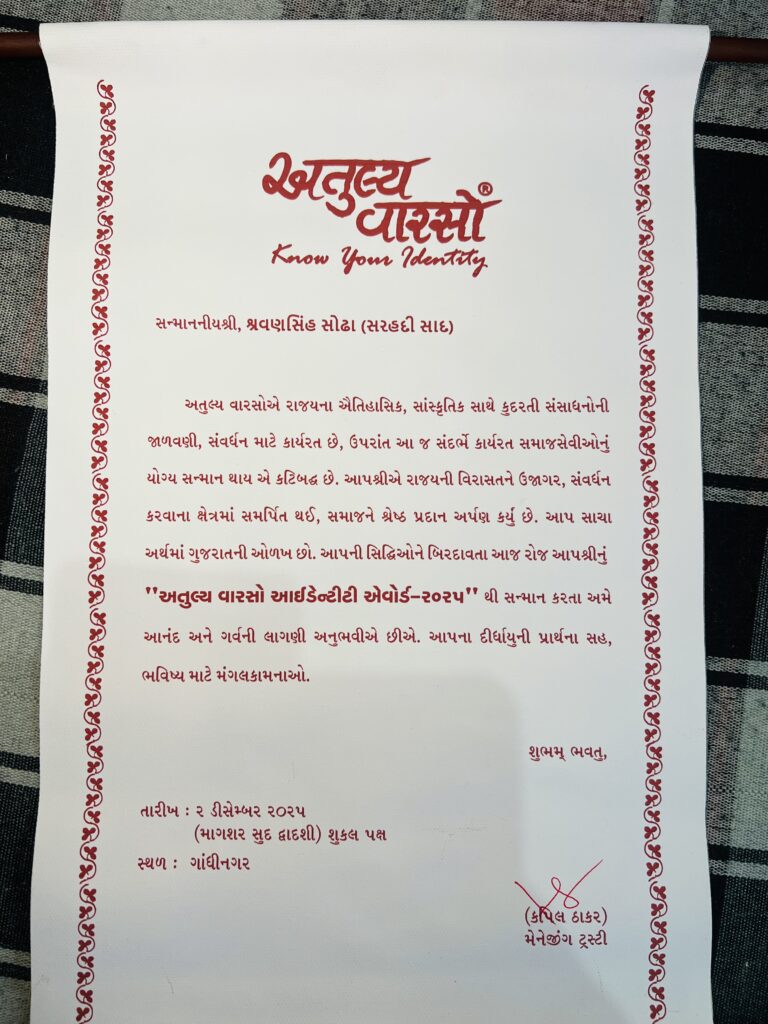 અતુલ્ય
વારસો®
Know Your Identity
સન્માનનીયશ્રી, શ્રવણસિંહ સોઢા (સરહદી સાદ)
અતુલ્ય વારસોએ રાજયના ઐતિહાસિક, સાંસ્કૃતિક સાથે કુદરતી સંસાધનોની
જાળવણી, સંવર્ધન માટે કાર્યરત છે, ઉપરાંત આ જ સંદર્ભે કાર્યરત સમાજસેવીઓનું
યોગ્ય સન્માન થાય એ કટિબદ્ધ છે. આપશ્રીએ રાજયની વિરાસતને ઉજાગર, સંવર્ધન
કરવાના ક્ષેત્રમાં સમર્પિત થઈ, સમાજને શ્રેષ્ઠ પ્રદાન અર્પણ કર્યું છે. આપ સાચા
અર્થમાં ગુજરાતની ઓળખ છો. આપની સિદ્ધિઓને બિરદાવતા આજ રોજ આપશ્રીનું
"અતુલ્ય વારસો આઈડેન્ટીટી એવોર્ડ–૨૦૨૫" થી સન્માન કરતા અમે
આનંદ અને ગર્વની લાગણી અનુભવીએ છીએ. આપના દીર્ધાયુની પ્રાર્થના સહ,
ભવિષ્ય માટે મંગલકામનાઓ.
શુભમ્ ભવતુ,
તારીખ : ૨ ડીસેમ્બર ૨૦૨૫
(માગશર સુદ દ્વાદશી) શુકલ પક્ષ
સ્થળ : ગાંધીનગર
(કપિલ ઠાકર)
મેનેજીંગ ટ્રસ્ટી